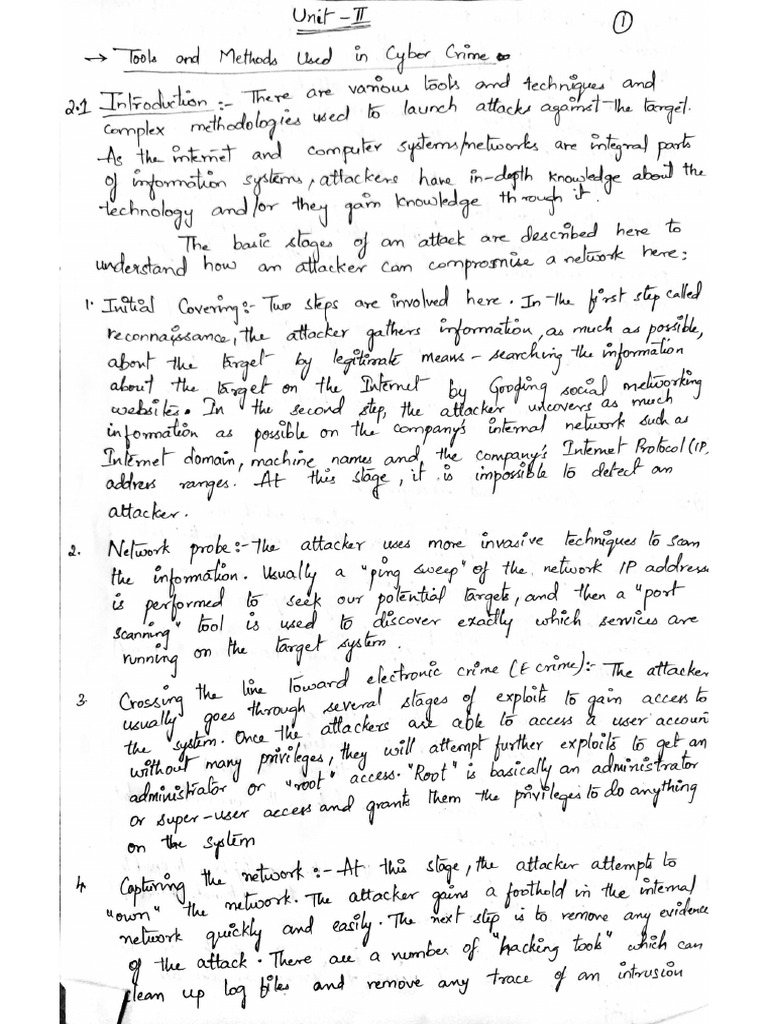 Unit - II
1
→ Tools and Methods Used in Cyber Crime
2.1 Introduction :- There are various tools and techniques and
complex methodologies used to launch attacks against the target.
As the internet and computer systems/networks are integral parts
of information systems, attackers have in-depth knowledge about the
technology and/or they gain knowledge through it.
The basic stages of an attack are described here to
understand how an attacker can compromise a network here:
1. Initial Covering:- Two steps are involved here. In the first step called
reconnaissance, the attacker gathers information, as much as possible,
about the target by legitimate means - searching the information
about the target on the Internet by Googling social networking
websites. In the second step, the attacker uncovers as much
information as possible on the company's internal network such as
Internet domain, machine names and the company's Internet Protocol (IP,
address ranges. At this stage, it is impossible to detect an
attacker.
2. Network probe:- the attacker uses more invasive techniques to scan
the information. Usually a "ping sweep" of the network IP address
is performed to seek our potential targets, and then a "port
scanning" tool is used to discover exactly which services are
running on the target system.
3. Crossing the line toward electronic crime (E crime):- The attacker
usually goes through several stages of exploits to gain access to
the system. Once the attackers are able to access a user accoun
without many privileges, they will attempt further exploits to get an
administrator or "root" access. "Root" is basically an administrator
or super-user access and grants them the privileges to do anything
on the system
4. Capturing the network :- At this stage, the attacker attempts to
"own" the network. The attacker gains a foothold in the internal
network quickly and easily. The next step is to remove any evidence
of the attack. There are a number of "hacking tools" which can
clean up log files and remove any trace of an intrusion